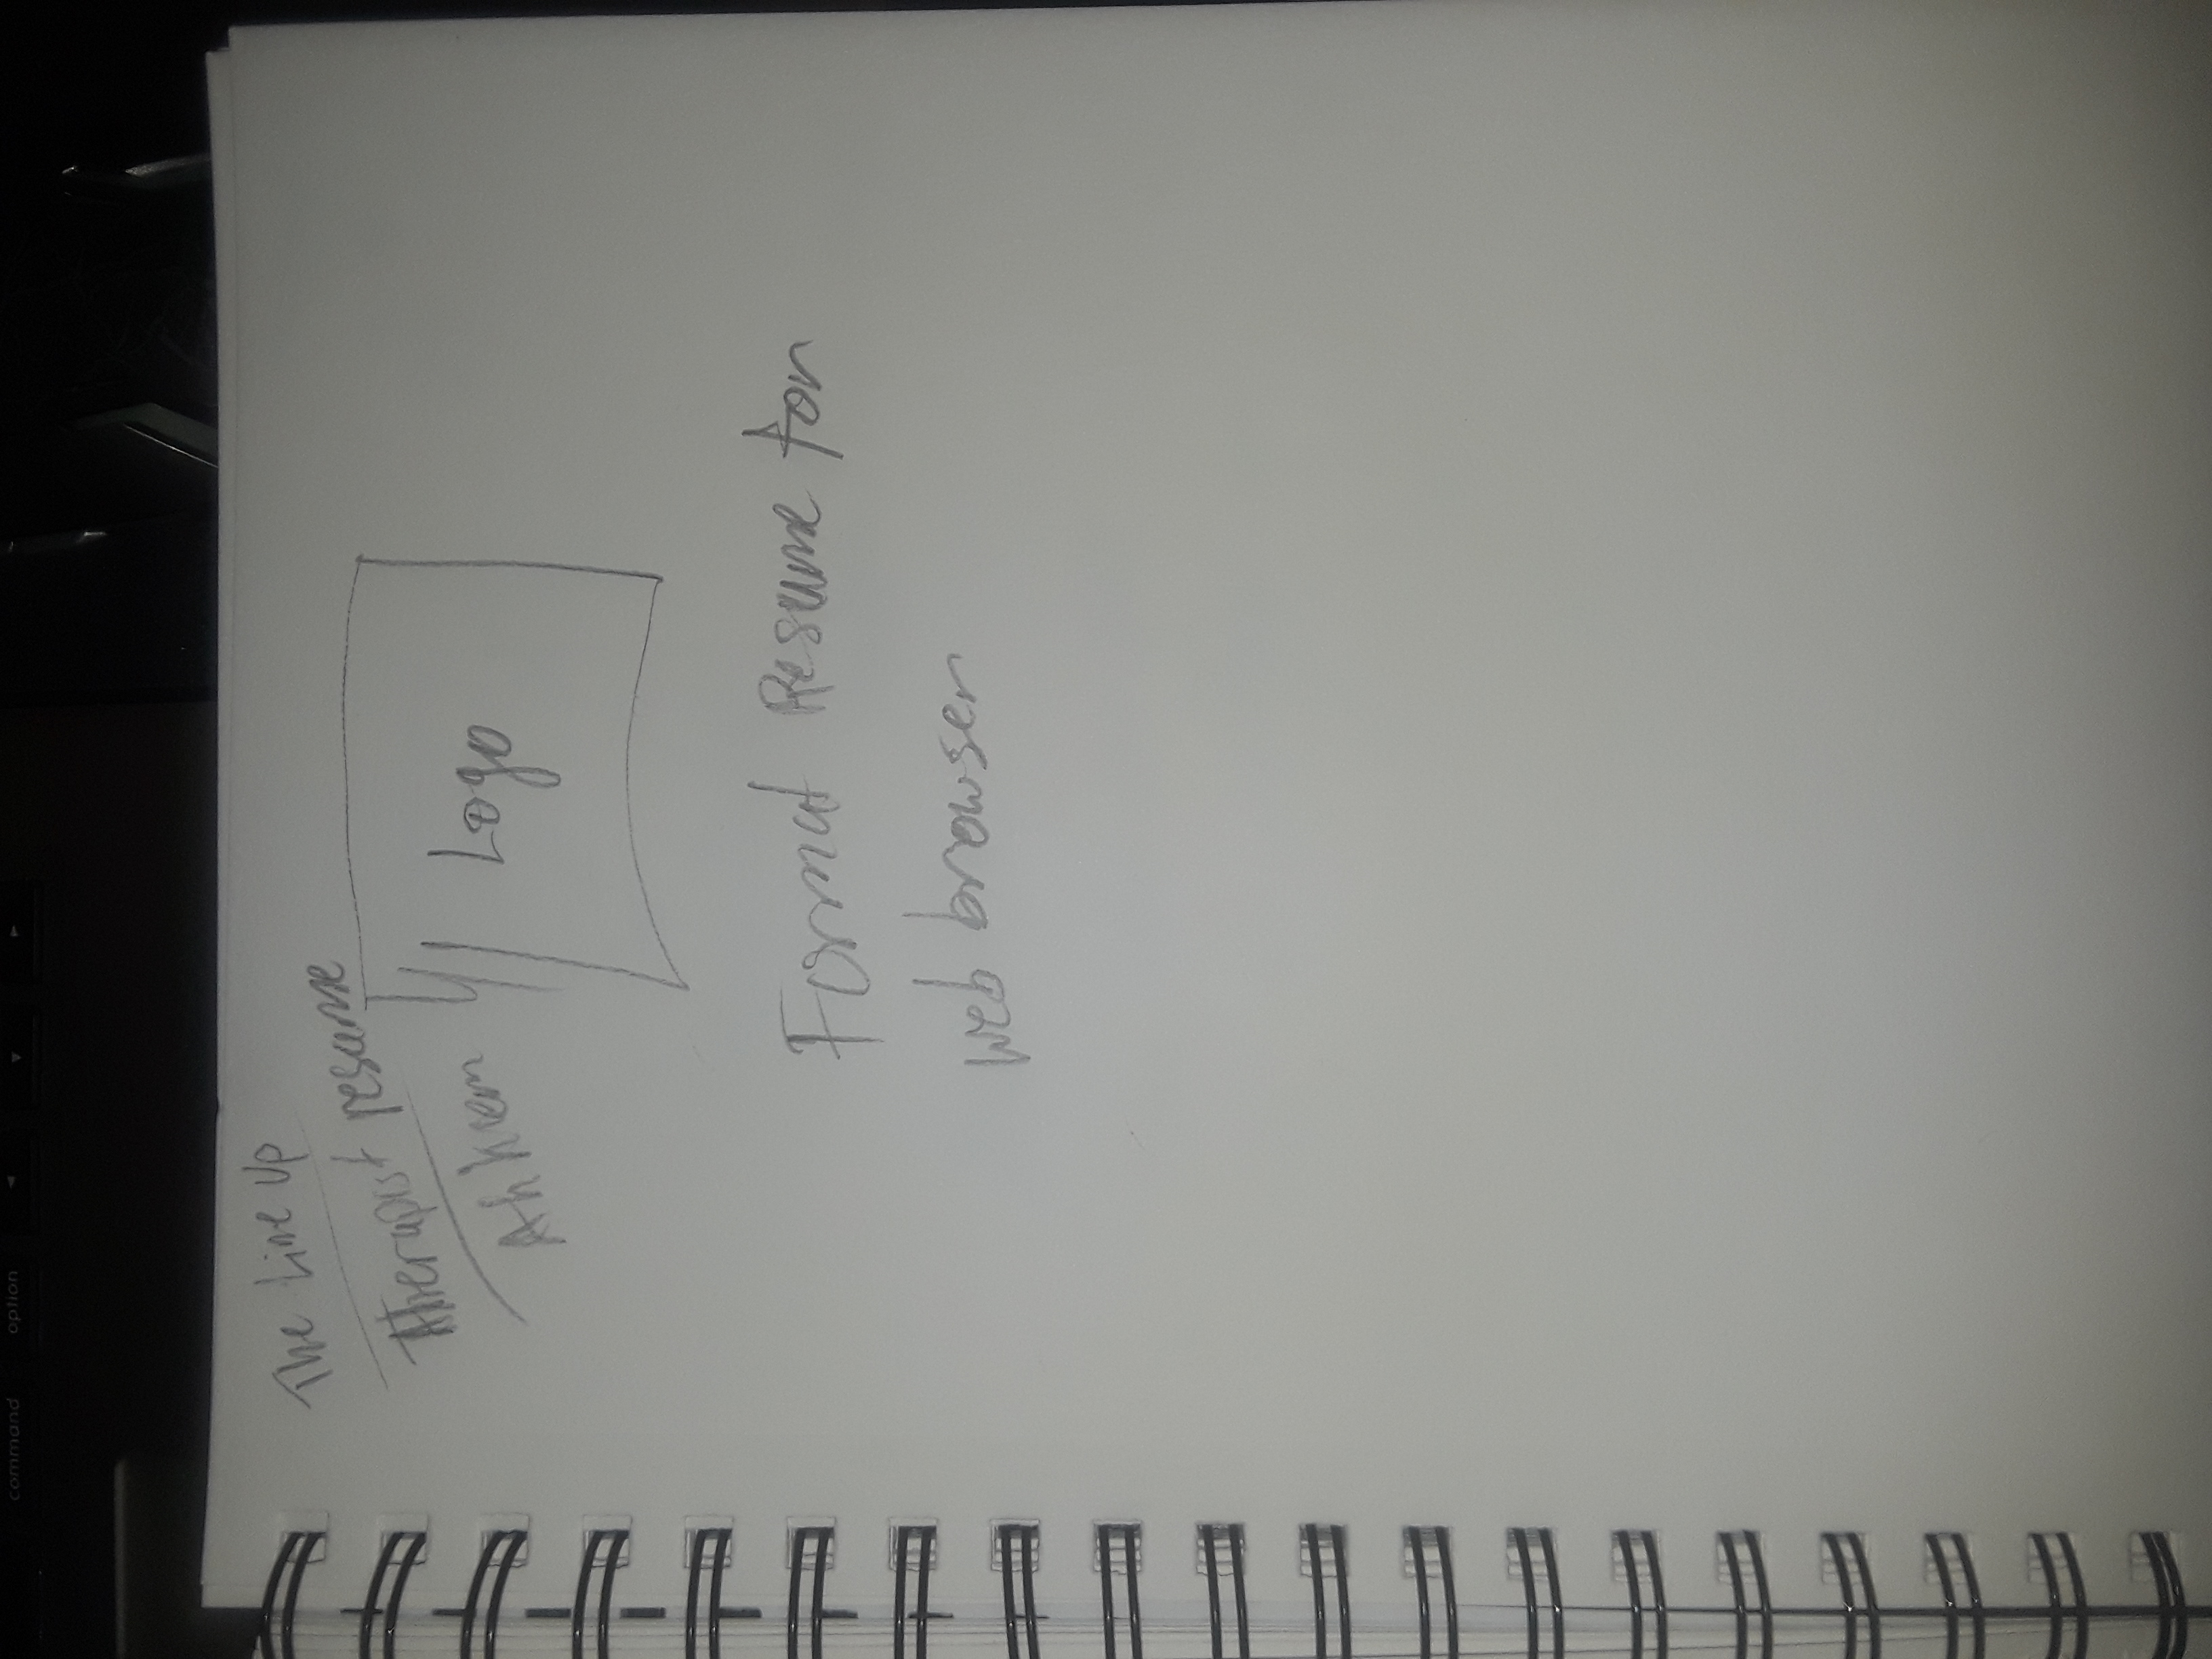 command option
The Line Up
therapist resume
Ahkiem
Logo
Format Resume for
web browser